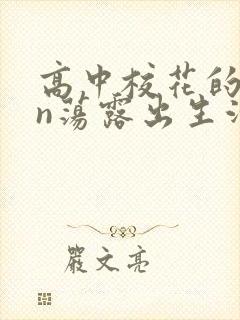 高中校花的
n荡露出生活
嚴文亮